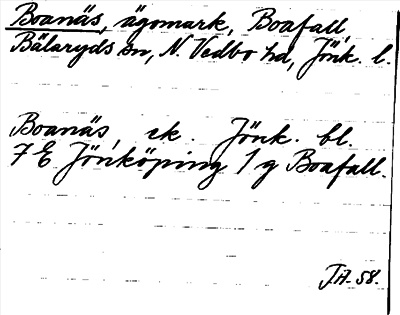 Boanäs, ägomark, Boafall,
Bälaryds sn, N. Vedbo hd, Jönk. l.
Boanäs, ek. Jönk. bl.
7 E Jönköping 1 g Boafall.
J.A. 58.